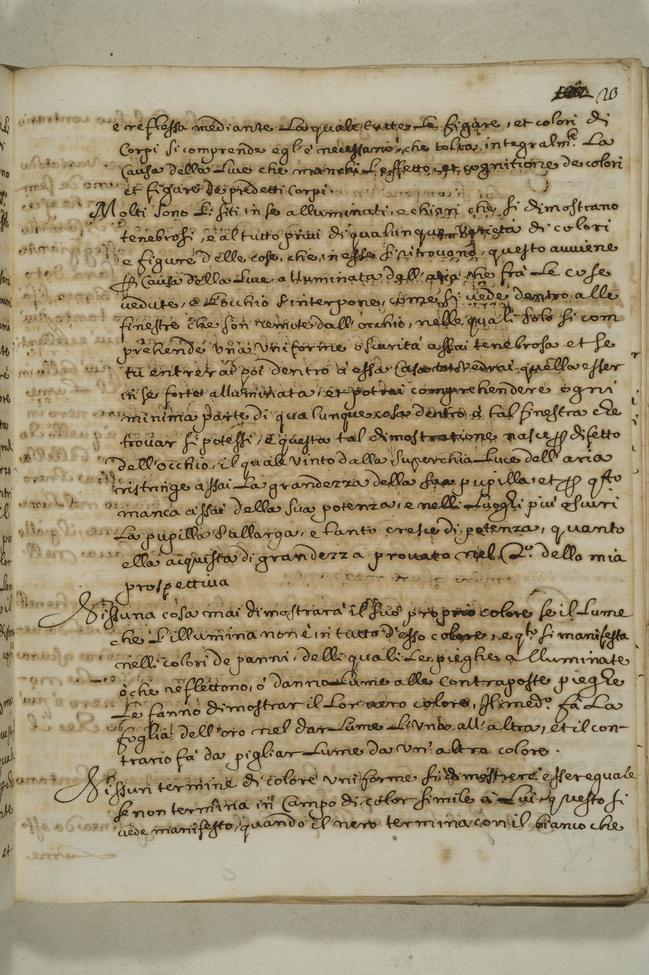 20
e reflessa mediante la quale tutte le figure, et colori di
Corpi si comprende egl'è necessario, che tolta integralm.te La
Causa della Luce che manchi L'effetto, et cognitione de colori
et figure de predetti Corpi.
Molti sono Li siti in se alluminati, e chiari che si dimostrano
tenebrosi, e al tutto privi di qualunque varietà di colori
e figure delle cose, che in esse si ritrovano, questo avviene
p Causa della Luce alluminata dell'aria che fra Le cose
vedute, e L'occhio s'interpone, come si vede dentro alle
finestre che son remote dall'occhio, nelle quali solo si com
prehende una uniforme oscurità assai tenebrosa et se
tu entrerai poi dentro a essa Casa tu vedrai quella esser
in se forte alluminata, et potrai comprehendere ogni
minima parte di qualunque cosa dentro à tal finestra che
trovar si potessi, e questa tal dimostratione nasce p difetto
dell'occhio, il quale vinto dalla superchia Luce dell'aria
ristringe assai La grandezza della sua pupilla, et p q.sto
manca assai della sua potenza, e nelli Luoghi più oscuri
La pupilla s'allarga, e tanto cresce di potenza, quanto
ella acquista di grandezza provato nel 2.o della mia
prospettiva
Nissuna cosa mai dimostrara il suo proprio colore se il Lume
che L'illumina non è in tutto d'esso colore, e q.to si manifesta
nelli colori de panni, delli quali Le pieghe alluminate
o che reflettono, ò danno Lume alle contraposte pieghe
Le fanno dimostrar il Lor vero colore, Il med.o fa La
foglia dell'oro nel dar Lume L'una all'altra, et il con-
trario fa da pigliar Lume da un'altro colore.
Nissun termine di colore uniforme si dimostrerà esser equale
se non termina in Campo di color simile a Lui, questo si
vede manifesto, quando il nero termina con il bianco che